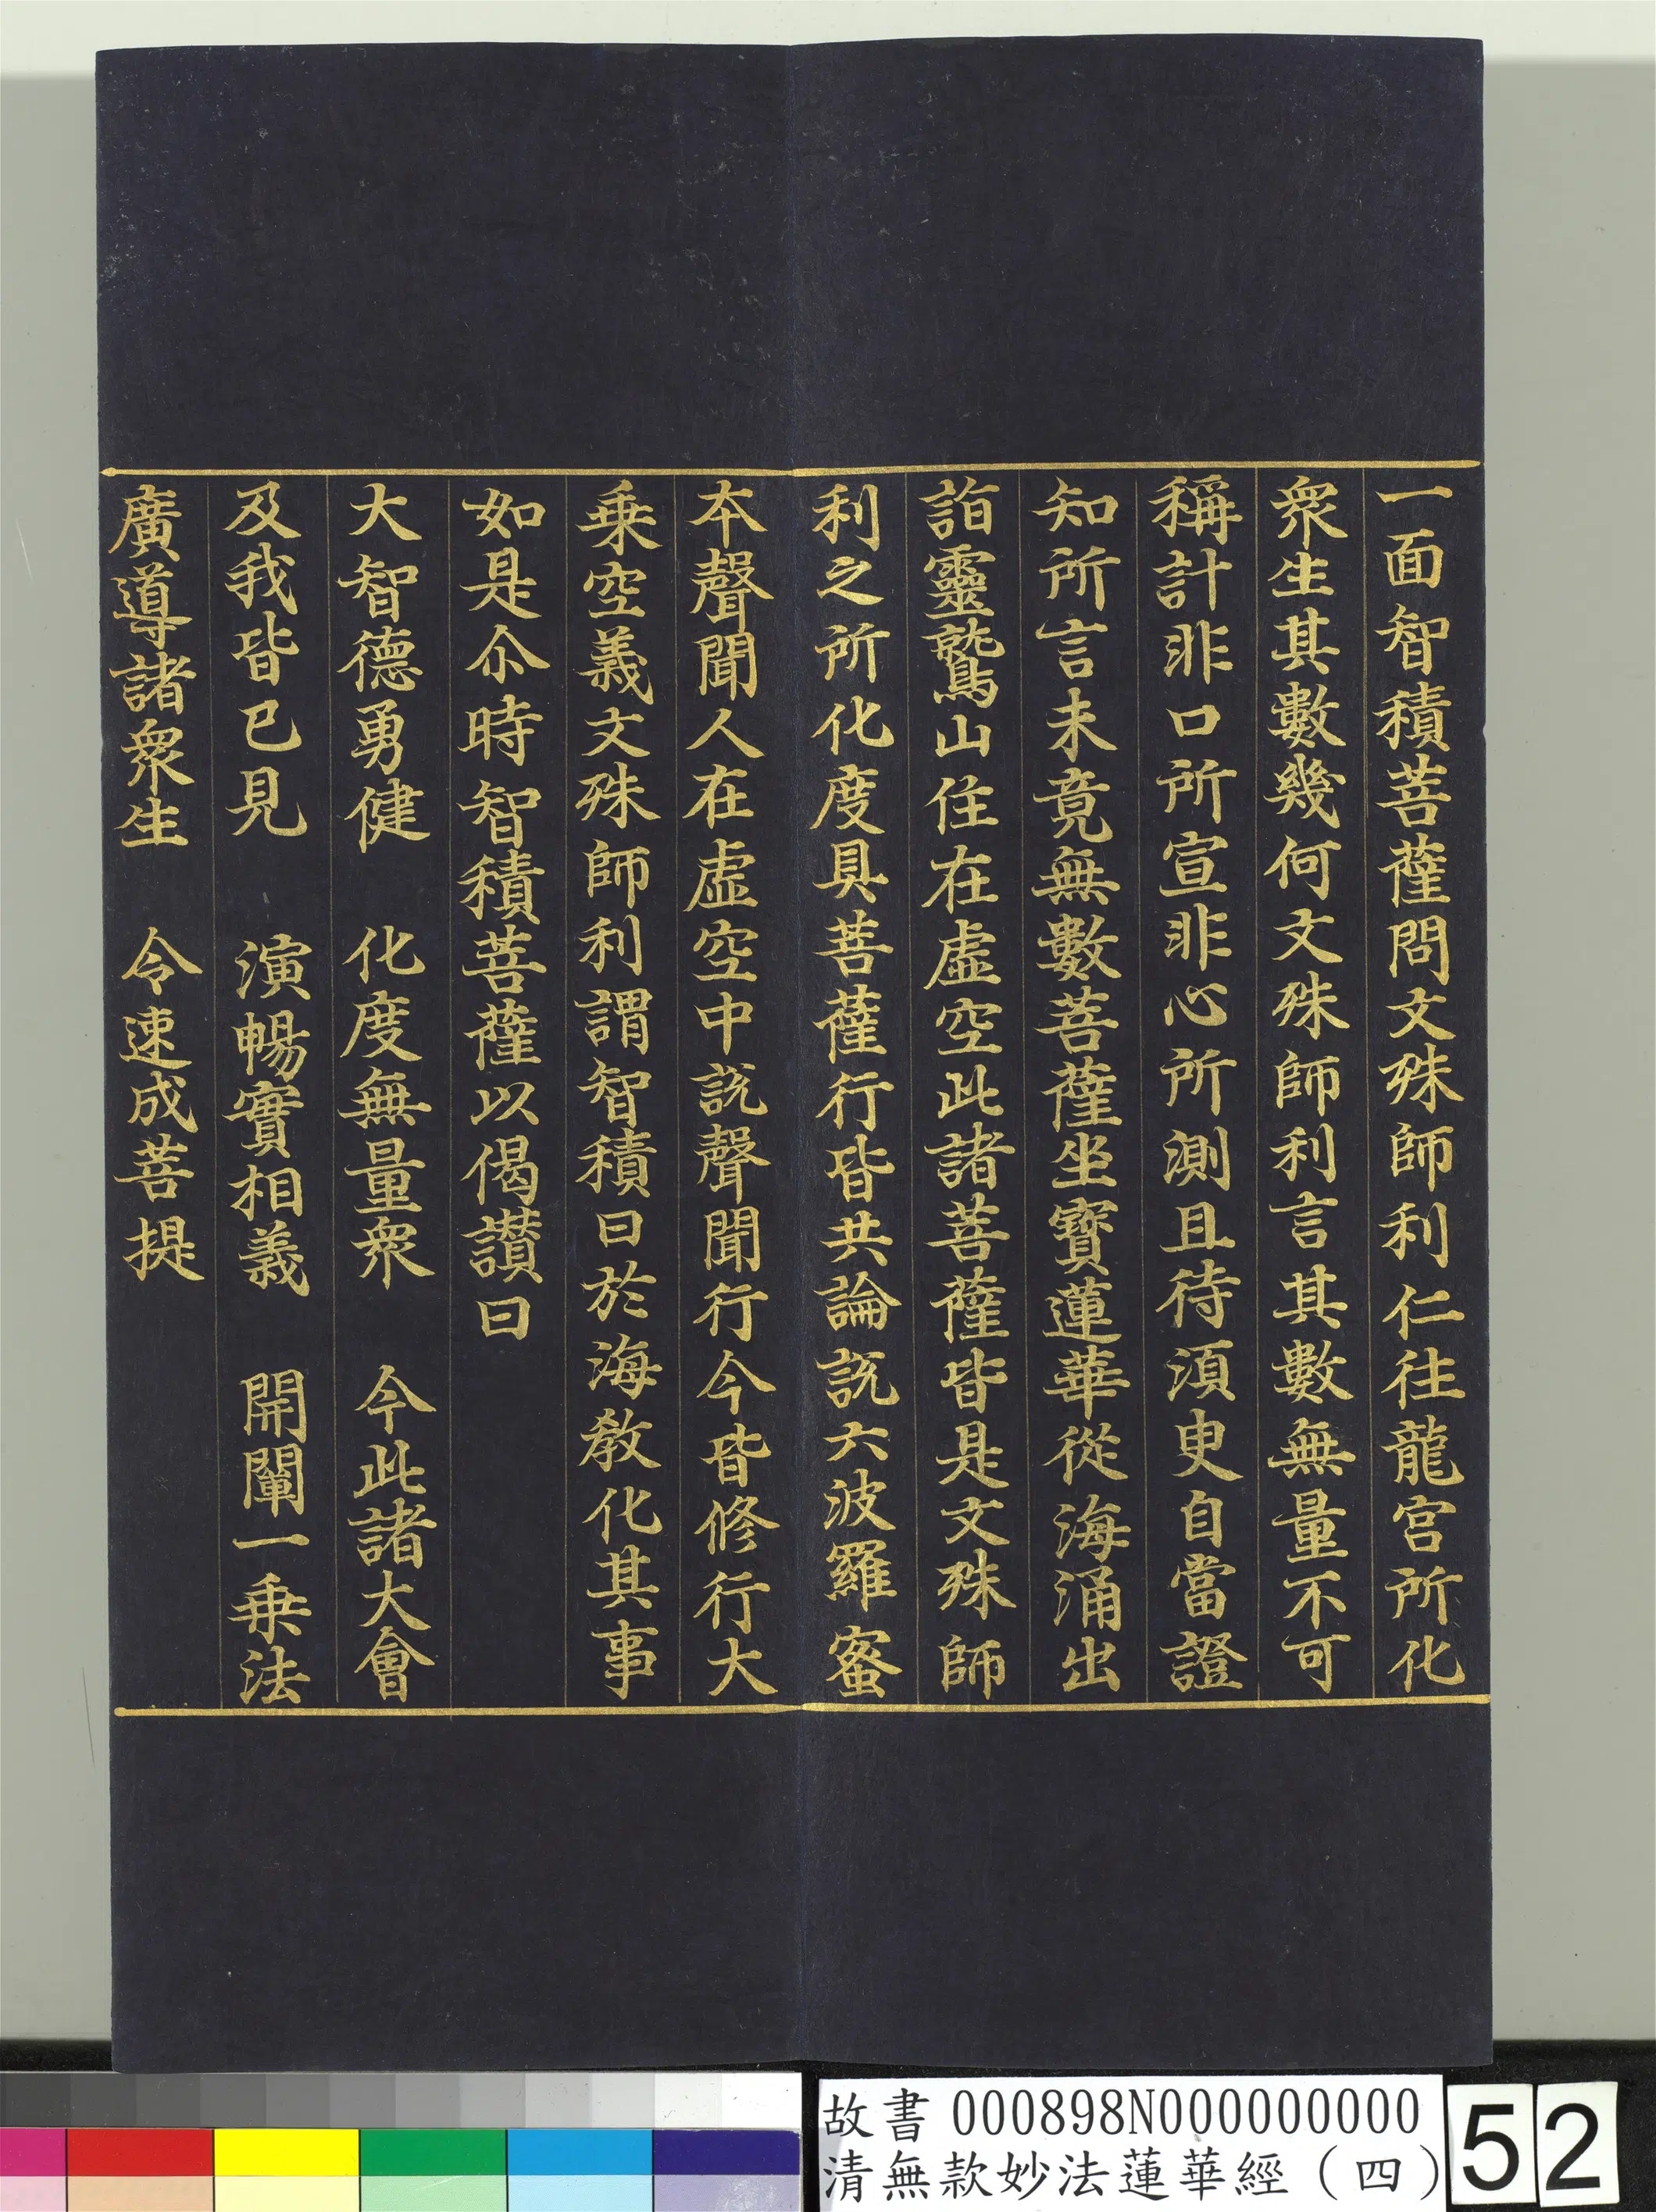 一面智積菩薩問文殊師利仁往龍宮所化
衆生其數幾何文殊師利言其數無量不可
稱計非口所宣非心所測且待須更自當證
知所言未竟無數菩薩坐寶蓮華從海涌出
詣靈鷲山住在虛空此諸菩薩皆是文殊師
利之所化度具菩薩行皆共論說六波羅蜜
本聲聞人在虛空中說聲聞行今皆修行大
乗空義文殊師利謂智積曰於海教化其事
如是尒時智積菩薩以偈讃曰
大智德勇健　化度無量衆　今此諸大會
及我皆已見　演暢實相義　開闡一乗法
廣導諸衆生　令速成菩提
故書 000898N000000000
清無款妙法蓮華經（四）
52